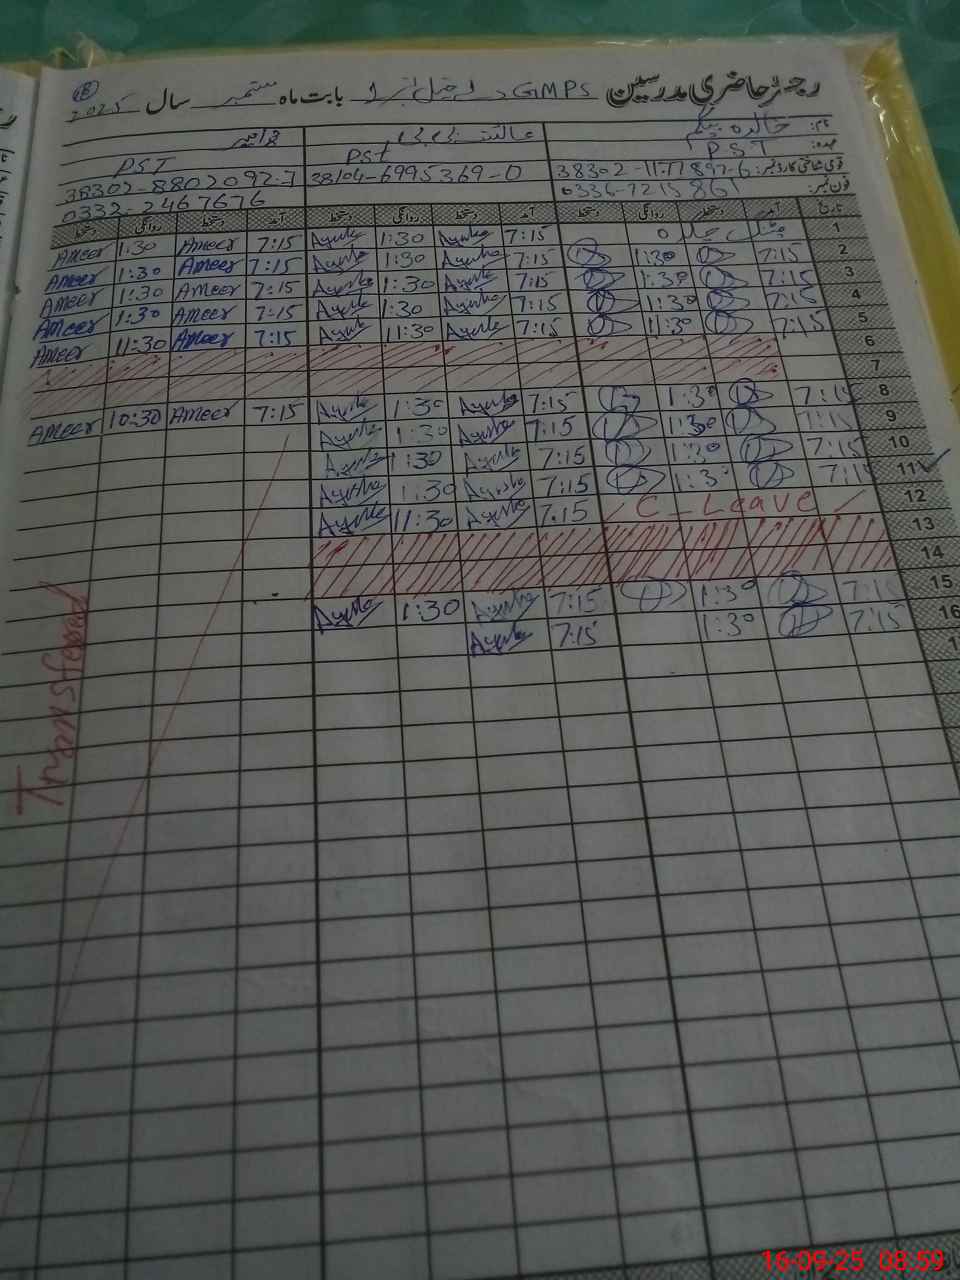 رجسٹر حاضری مدرسین GMPS بابت ماہ ستمبر سال 2025
نام: خالدہ بیگم عائشہ بی بی
عہدہ: PST PST PST
قومی شناختی کارڈ نمبر: 38302-1177897-6 38104-6995369-0 38302-8802092-7
فون نمبر: 0336-7215861 0332-2467676
تاریخ آمد دستخط روانگی دستخط آمد دستخط روانگی دستخط آمد دستخط روانگی دستخط
1 7:15 Ayesha 1:30 Ayesha 7:15 Ameer 1:30 Ameer
2 7:15 1:30 7:15 Ayesha 1:30 Ayesha 7:15 Ameer 1:30 Ameer
3 7:15 1:30 7:15 Ayesha 1:30 Ayesha 7:15 Ameer 1:30 Ameer
4 7:15 1:30 7:15 Ayesha 1:30 Ayesha 7:15 Ameer 1:30 Ameer
5 7:15 11:30 7:15 Ayesha 11:30 Ayesha 7:15 Ameer 11:30 Ameer
6
7
8 7:15 1:30 7:15 Ayesha 1:30 Ayesha 7:15 Ameer 10:30 Ameer
9 7:15 1:30 7:15 Ayesha 1:30 Ayesha
10 7:15 1:30 7:15 Ayesha 1:30 Ayesha
11 7:15 1:30 7:15 Ayesha 1:30 Ayesha
12 C-Leave 7:15 Ayesha 11:30 Ayesha
13
14
15 7:15 1:30 7:15 Ayesha 1:30 Ayesha
16 7:15 1:30 7:15 Ayesha
1
Transfered
16-09-25 08:59